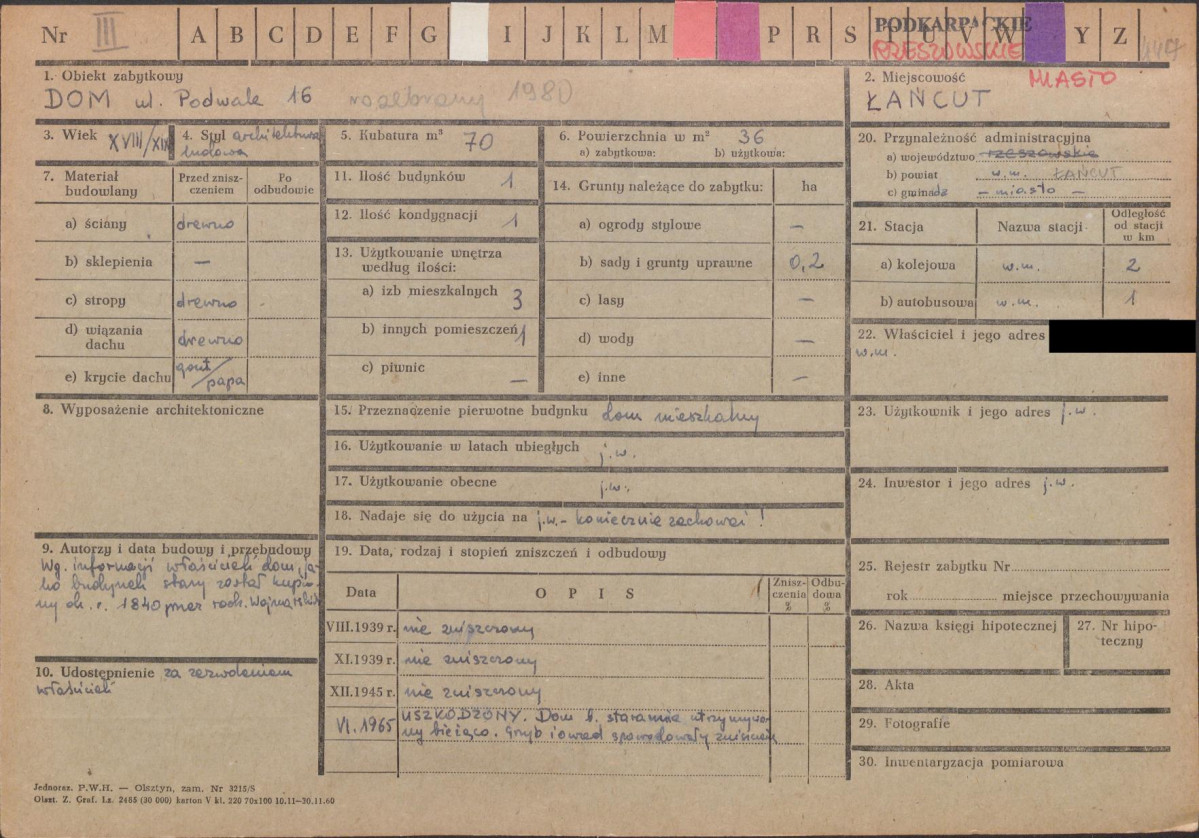 Nr III A B C D E F G I J K L M P R S T U V W Y Z
PODKARPACKIE
RZESZOWSKIE
1. Obiekt zabytkowy
DOM ul. Podwale 16 rozebrany 1980
2. Miejscowość MIASTO
ŁAŃCUT
3. Wiek XVIII/XIX
4. Styl architektura
ludowa
5. Kubatura m³ 70
6. Powierzchnia w m² 36
a) zabytkowa: b) użytkowa:
7. Materiał
budowlany
Przed znisz-
czeniem
Po
odbudowie
a) ściany drewno
b) sklepienia —
c) stropy drewno
d) wiązania
dachu drewno
e) krycie dachu gont/
papa
11. Ilość budynków 1
12. Ilość kondygnacji 1
13. Użytkowanie wnętrza
według ilości:
a) izb mieszkalnych 3
b) innych pomieszczeń 1
c) piwnic —
14. Grunty należące do zabytku: ha
a) ogrody stylowe —
b) sady i grunty uprawne 0,2
c) lasy —
d) wody —
e) inne —
20. Przynależność administracyjna
a) województwo rzeszowskie
b) powiat w.m. ŁAŃCUT
c) gminada — miasto —
21. Stacja Nazwa stacji
Odległość
od stacji
w km
a) kolejowa w.m. 2
b) autobusowa w.m. 1
22. Właściciel i jego adres
w.m.
8. Wyposażenie architektoniczne
15. Przeznaczenie pierwotne budynku dom mieszkalny
16. Użytkowanie w latach ubiegłych j.w.
17. Użytkowanie obecne j.w.
18. Nadaje się do użycia na j.w. - koniecznie zachować!
23. Użytkownik i jego adres j.w.
24. Inwestor i jego adres j.w.
9. Autorzy i data budowy i przebudowy
Wg. informacji właścicieli dom, ja-
ko budynek stary został kupio-
ny ok. r. 1840 przez rodz.
10. Udostępnienie za zezwoleniem
właścicieli
19. Data, rodzaj i stopień zniszczeń i odbudowy
Data OPIS
Znisz-
czenia
%
Odbu-
dowa
%
VIII.1939 r. nie zniszczony
XI.1939 r. nie zniszczony
XII.1945 r. nie zniszczony
VI. 1965 USZKODZONY. Dom b. starannie utrzymywa-
ny bieżąco. Grzyb i owad spowodowały zniszcze
25. Rejestr zabytku Nr
rok miejsce przechowywania
26. Nazwa księgi hipotecznej
27. Nr hipo-
teczny
28. Akta
29. Fotografie
30. Inwentaryzacja pomiarowa
Jednoraz. P.W.H. — Olsztyn, zam. Nr 3215/S
Olszt. Z. Graf. Lz. 2485 (30 000) karton V kl. 220 70x100 10.11—30.11.60